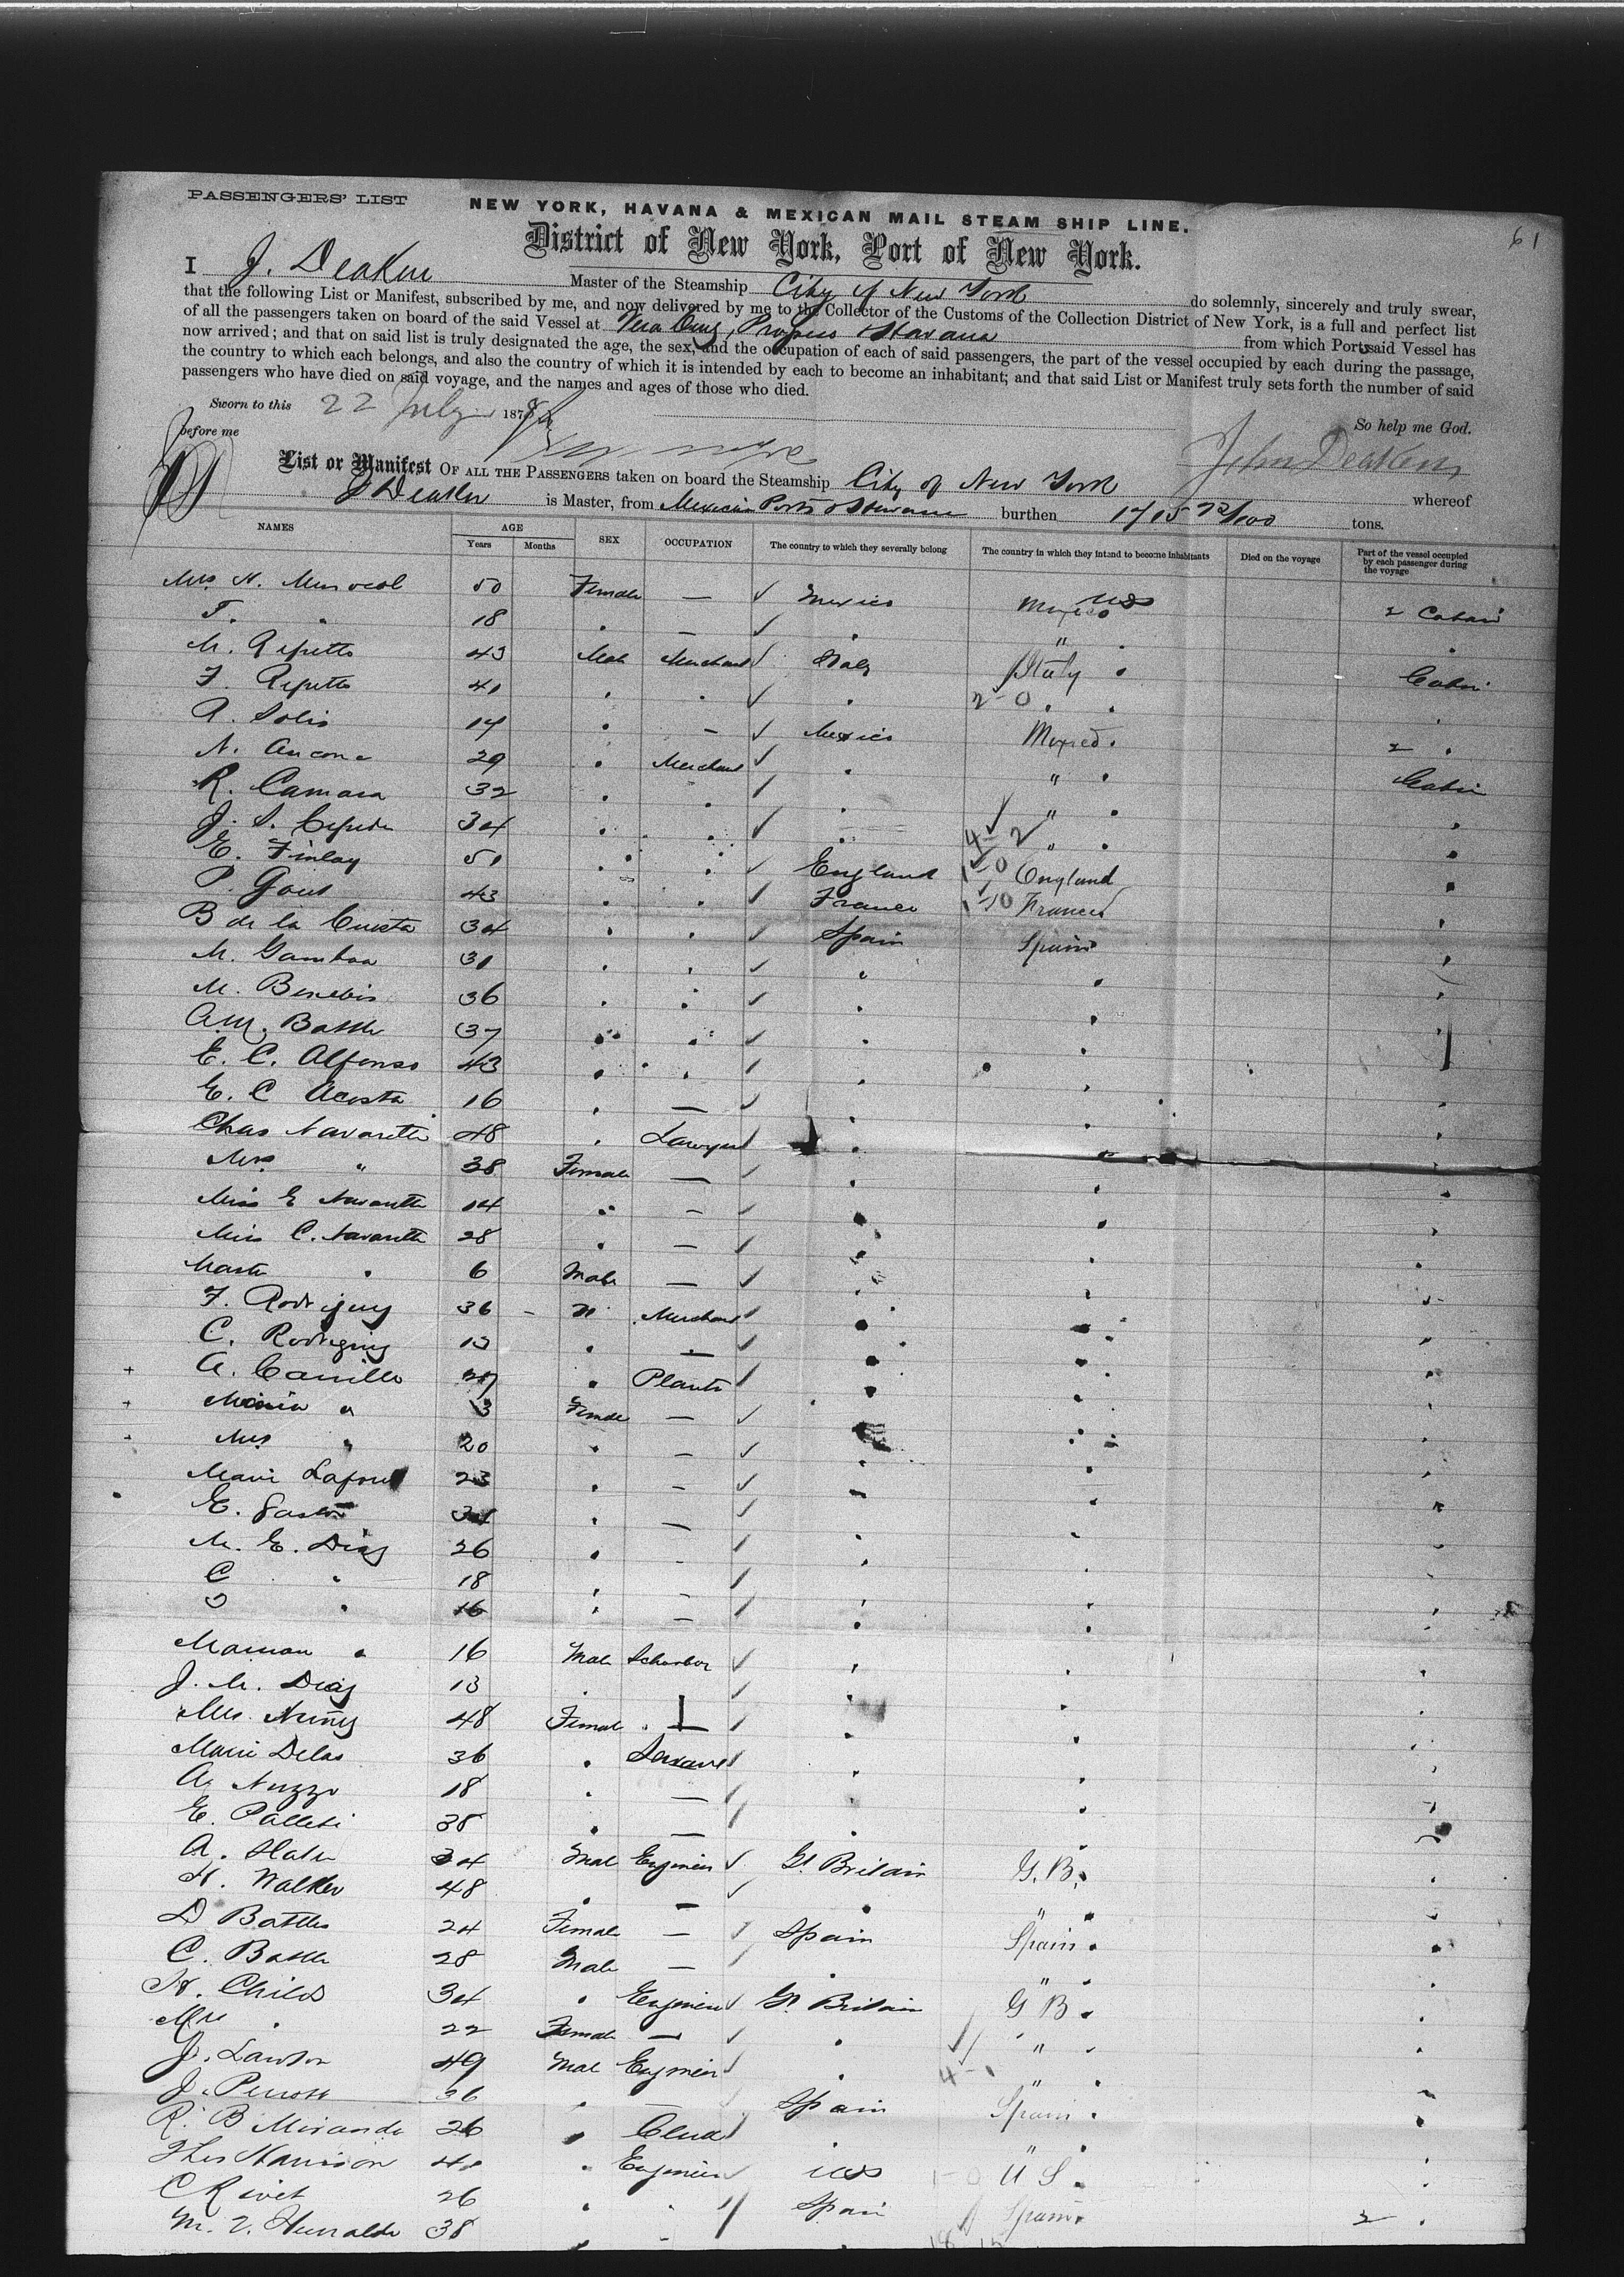 PASSENGERS' LIST
61
NEW YORK, HAVANA & MEXICAN MAIL STEAM SHIP LINE.
District of New York, Port of New York.
I J. Deaken Master of the Steamship City of New York do solemnly, sincerely and truly swear,
that the following List or Manifest, subscribed by me, and now delivered by me to the Collector of the Customs of the Collection District of New York, is a full and perfect list
of all the passengers taken on board of the said Vessel at Vera Cruz, Progreso & Havana from which Ports said Vessel has
now arrived; and that on said list is truly designated the age, the sex, and the occupation of each of said passengers, the part of the vessel occupied by each during the passage,
the country to which each belongs, and also the country of which it is intended by each to become an inhabitant; and that said List or Manifest truly sets forth the number of said
passengers who have died on said voyage, and the names and ages of those who died.
Sworn to this 22 July 1878
So help me God.
before me
John Deaken
List or Manifest OF ALL THE PASSENGERS taken on board the Steamship City of New York whereof
J Deaken is Master, from Mexican Ports & Havana burthen 1715 72/100 tons.
NAMES AGE Years Months SEX OCCUPATION The country to which they severally belong The country in which they intend to become inhabitants Died on the voyage Part of the vessel occupied by each passenger during the voyage
Mrs. N. 50 Female — ✓ Mexico Mexico US 2 Cabin
T. " 18 " — ✓ " " "
M. Repetto 43 Male Merchant ✓ Italy Italy " Cabin
F. Repetto 41 " " ✓ " 2-0 " "
A. Solis 14 " — ✓ Mexico Mexico " 2 "
N. Ancona 29 " Merchant ✓ " " " Cabin
R. Camara 32 " " ✓ " " " "
J. S. Cepeda 34 " " ✓ " 4-2 " " "
E. Finlay 51 " " ✓ England 1-0 England "
P. 43 " " ✓ France 1-0 France "
B de la Cuesta 34 " " ✓ Spain Spain "
M. Gamboa 31 " " ✓ " " "
M. 36 " " ✓ " " "
A.M. Battle 37 " " ✓ " " "
E. C. Alfonso 43 " " ✓ " " "
E. C Acosta 16 " — ✓ " " "
Chas Navarette 48 " Lawyer ✓ " " "
Mrs " 38 Female — ✓ " " "
Miss E Navarette 14 " — " " "
Miss C. Navarette 28 " — ✓ " " "
Master " 6 Male — ✓ " " "
F. Rodriguez 36 " Merchant ✓ " " "
C. Rodriguez 13 " — ✓ " " "
+ A. Carrillo 27 " Planter ✓ " " "
+ Maria " 3 Female — ✓ " " "
Mrs " 20 " — ✓ " " "
Marie 23 " — ✓ " " "
E. 34 " — ✓ " " "
M. E. Diaz 26 " — ✓ " " "
C " 18 " — ✓ " " "
" 16 " — ✓ " " "
" 16 Male ✓ " " "
J. M. Diaz 13 " ✓ " " "
Mrs. Nuñez 48 Female — ✓ " " "
Marie Delas 36 " Servant ✓ " " "
A. Nuzzo 18 " — ✓ " " "
E. 38 " — ✓ " " "
A. 34 Male Engineer ✓ Gt. Britain G. B. "
H. Walker 48 " — ✓ " " "
D Battles 24 Female — ✓ Spain Spain "
C. Battle 28 Male — ✓ " " "
H. Childs 34 " Engineer ✓ Gt Britain G B. "
Mrs " 22 Female — ✓ " " "
J. Lawson 49 Male Engineer ✓ " 4-1 " "
J. 36 " — ✓ Spain Spain "
R. B Miranda 26 " Clerk " " "
Thos Harrison 41 " Engineer ✓ US 1-0 U S. "
C Rivet 26 " " Spain Spain 2 "
38